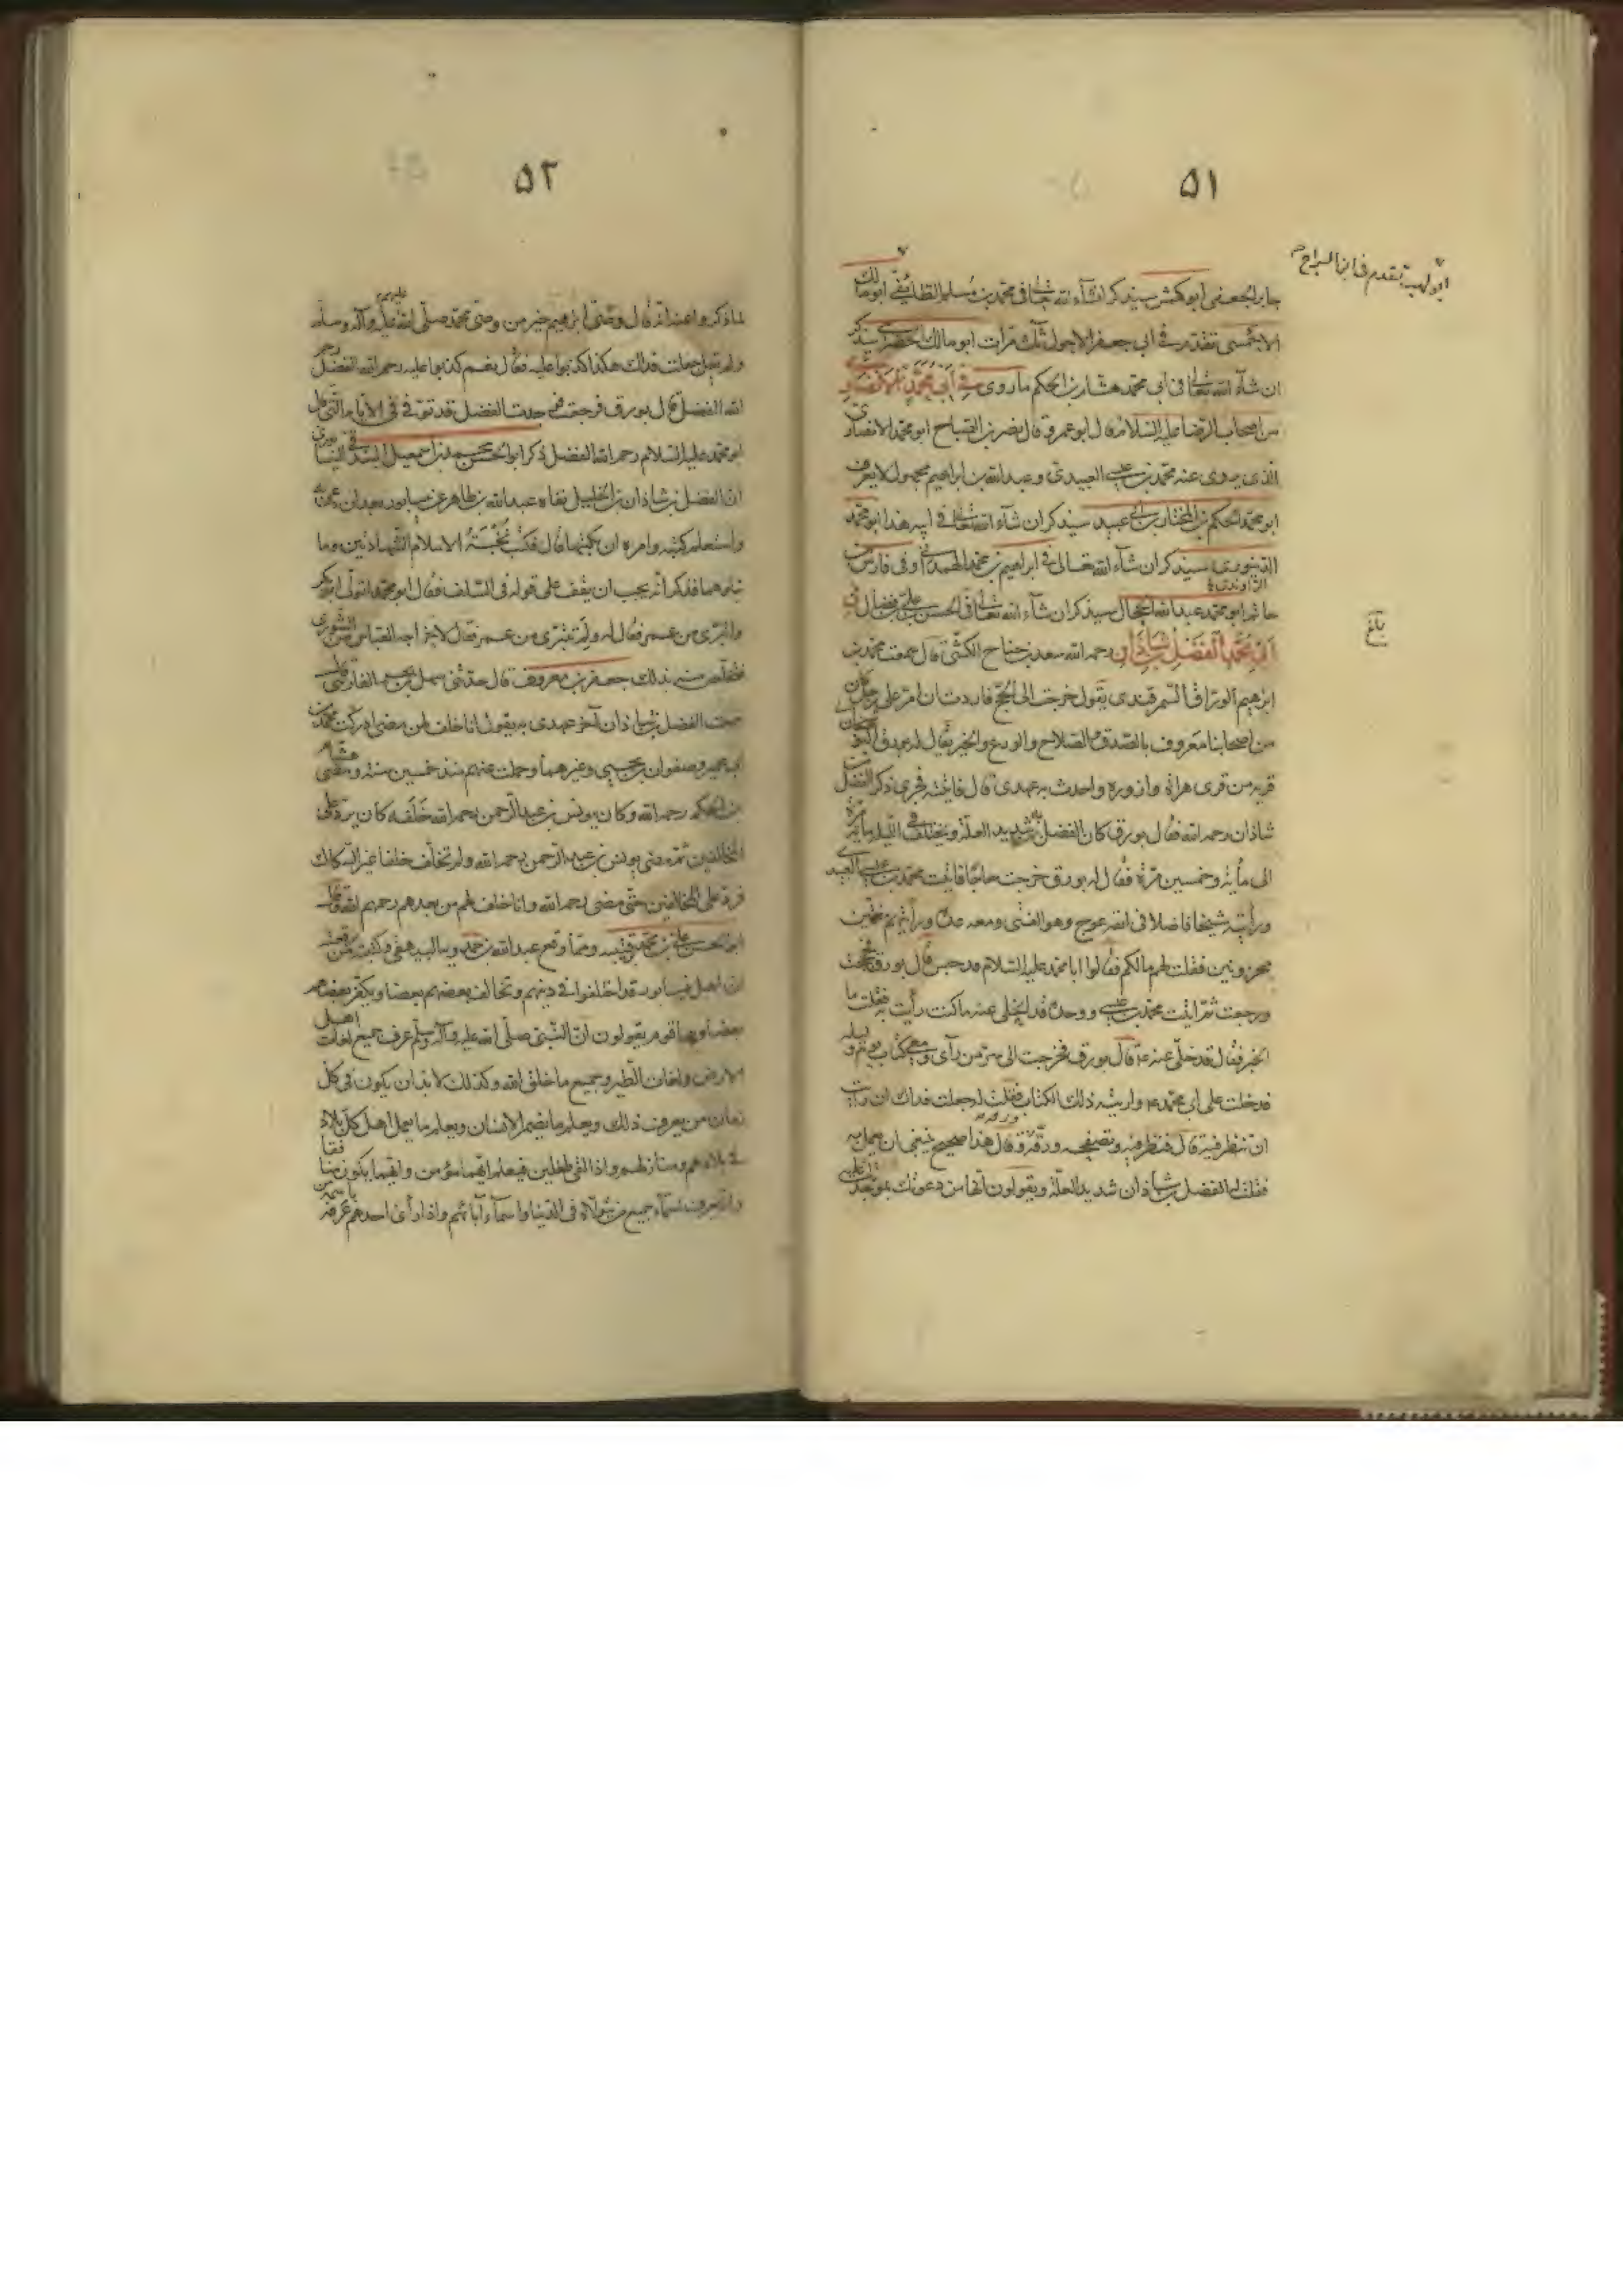 ٥١
ابو لهب تقدم في ابن السراج
جابر الجعفي ابو كهمس سيذكر ان شآء الله تعالى في محمد بن مسلم الطائفي ابو مالك
الاحمسي تقدم في ابي جعفر الاحول ثلث مرات ابو مالك الحضرمي يذكر
ان شآء الله تعالى في ابي محمد هشام بن الحكم ما روى في ابي محمد الانصاري
من اصحاب الرضا عليه السلام قال ابو عمرو قال نصر بن الصباح ابو محمد الانصاري
الذي يروى عنه محمد بن عيسى العبيدي وعبد الله بن ابراهيم مجهول لا يعرف
ابو محمد الحكم بن المختار بن ابي عبيد سيذكر ان شآء الله تعالى في ابيه هذا ابو محمد
الدينوري سيذكر ان شآء الله تعالى في ابراهيم بن محمد الهمداني وفي فارس بن
حاتم ابو محمد عبد الله الحجال سيذكر ان شآء الله تعالى في الحسن بن علي بن فضال في
ابي محمد الفضل بن شاذان رحمه الله سعد بن جناح الكشي قال سمعت محمد بن
بلغ
ابرهيم الوراق السمرقندي يقول خرجت الى الحج فاردت ان امر على رجل كان
من اصحابنا معروف بالصدق والصلاح والورع والخير يقال له بورق
قرية من قرى هراة وازوره واحدث به عهدي قال فاتيته فجرى ذكر الفضل بن
شاذان رحمه الله فقال بورق كان الفضل به شديد العلة ويختلف في الليلة مائة مرة
الى مأية وخمسين مرة فقال له بورق خرجت حاجا فاتيت محمد بن عيسى العبيدي
ورأيته شيخا فاضلا في انفه عوج وهو القنى ومعه عدة ورأيتهم مغتمين
محزونين فقلت لهم مالكم فقالوا ابا محمد عليه السلام قد حبس قال بورق فحججت
ورجعت ثم اتيت محمد بن عيسى ووجدته قد انجلى عنه ما كنت رأيت به فقلت ما
الخبر فقال قد خلي عنه ع قال بورق فخرجت الى سر من رأى ومعي كتاب يوم وليلة
فدخلت على ابي محمد ع واريته ذلك الكتاب فقلت له جعلت فداك ان رأيت
ان تنظر فيه قال فنظر فيه وتصفحه ورقة ورقة وقال هذا صحيح ينبغي ان يعمل به
فقلت له الفضل بن شاذان شديد العلة ويقولون انها من دعوتك بموجدتك عليه
٥٢
لما ذكروا عنه انه قال وصي ابرهيم خير من وصي محمد صلى الله عليه وآله وسلم
ولم يقل جعلت فداك هكذا كذبوا عليه فقال نعم كذبوا عليه رحم الله الفضل رحم
الله الفضل قال بورق فرجعت فوجدت الفضل قد توفي في الايام التي قال
ابو محمد عليه السلام رحم الله الفضل ذكر ابو الحسن محمد بن اسمعيل البندقي النيسابوري
ان الفضل بن شاذان بن الخليل نفاه عبد الله بن طاهر عن نيسابور بعد ان دعى به
واستعلم كتبه وامره ان يكتبها قال فكتب تحته الاسلام الشهادتين وما
يتلوهما فذكر انه يحب ان يقف على قوله في السلف فقال ابو محمد اتولى ابا بكر
واتبرى من عمر فقال له ولم تتبرى من عمر فقال لاخراجه العباس من الشورى
فتخلص منه بذلك جعفر بن معروف قال حدثني سهل بن بحر الفارسي قال
سمعت الفضل بن شاذان آخر عهدي به يقول انا خلف لمن مضى ادركت محمد بن
ابي عمير وصفوان بن يحيى وغيرهما وحملت عنهم منذ خمسين سنة ومضى هشام
بن الحكم رحمه الله وكان يونس بن عبد الرحمن رحمه الله خلفه كان يرد على
المخالفين ثم مضى يونس بن عبد الرحمن رحمه الله ولم تخلف خلفا غير السكاك
فرد على المخالفين حتى مضى رحمه الله وانا خلف لهم من بعدهم رحمهم الله وقال
ابو الحسن علي بن محمد بن قتيبه ومما وقع عبد الله بن حمدويه البيهقي وكتبته من رقعته
ان اهل نيسابور قد اختلفوا في دينهم وتخالف بعضهم بعضا ويكفر بعضهم
بعضا وبها قوم يقولون ان النبي صلى الله عليه وآله وسلم عرف جميع لغات اهل
الارض ولغات الطير وجميع ما خلق الله وكذلك لا بد ان يكون في كل
زمان من يعرف ذلك ويعلم ما يضمر الانسان ويعلم ما يعمل اهل كل بلاد
في بلادهم ومنازلهم واذا لقي طفلين فيعلم ايهما مؤمن وايهما يكون منافقا
وانه يعرف اسمآء جميع من يتولاه في الدنيا واسمآء آبائهم واذا رأى احدهم عرفه باسمه